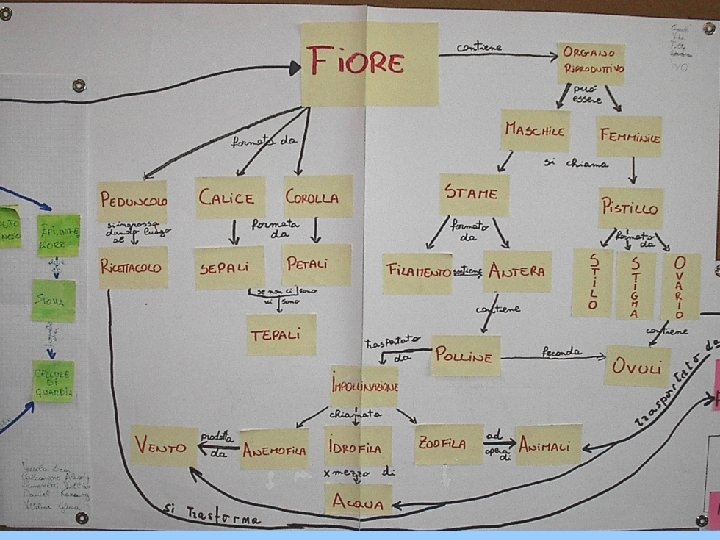 FIORE
contiene
ORGANO
RIPRODUTTIVO
può
essere
MASCHILE
FEMMINILE
si chiama
formato da
PEDUNCOLO
CALICE
COROLLA
STAME
PISTILLO
si ingrossa
dando luogo
ad
formata
da
formato
da
formato
da
RICETTACOLO
SEPALI
PETALI
FILAMENTO
sostiene
ANTERA
STILO
STIGMA
OVARIO
se non ci sono
vi sono
TEPALI
contiene
contiene
trasportato
da
POLLINE
feconda
OVULI
IMPOLLINAZIONE
chiamata
VENTO
prodotta
da
ANEMOFILA
IDROFILA
ZOOFILA
ad
opera
di
ANIMALI
x mezzo di
ACQUA
si trasforma
trasportato da
STOMA
CELLULE
DI
GUARDIA